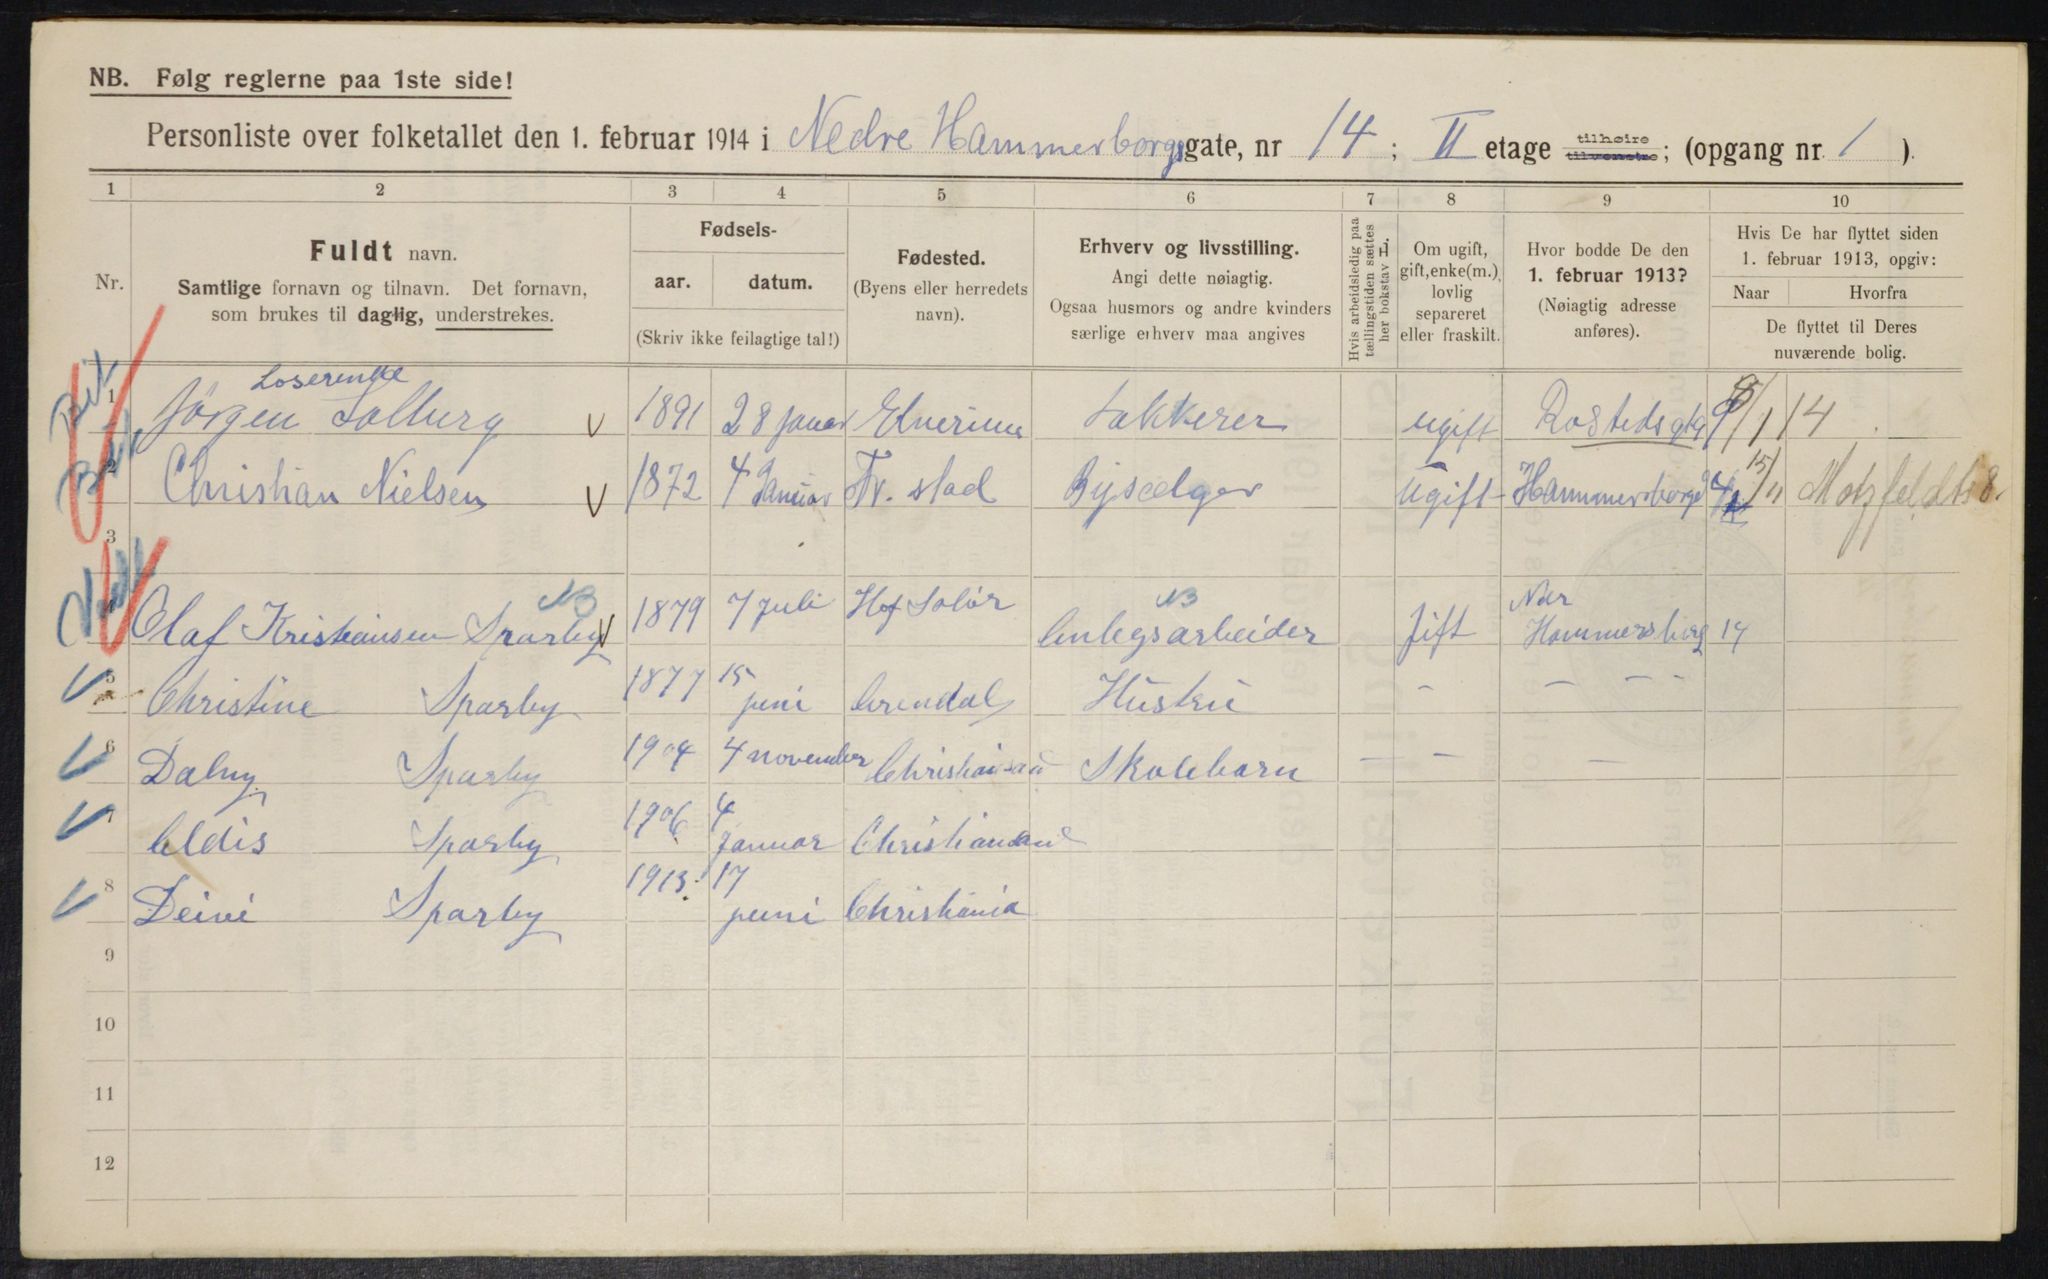 NB. Følg reglerne paa 1ste side!
Personliste over folketallet den 1. februar 1914 i Nedre Hammerborgs gate, nr 14 ; II etage tilhøire tilvenstre ; (opgang nr. 1 ).
1 2 3 4 5 6 7 8 9 10
Nr.
Fuldt navn.
Samtlige fornavn og tilnavn. Det fornavn,
som brukes til daglig, understrekes.
Fødsels-
aar. datum.
(Skriv ikke feilagtige tal!)
Fødested.
(Byens eller herredets
navn).
Erhverv og livsstilling.
Angi dette nøiagtig.
Ogsaa husmors og andre kvinders
særlige erhverv maa angives
Hvis arbeidsledig paa
tællingstiden sættes
her bokstav L.
Om ugift,
gift, enke(m.),
lovlig
separeret
eller fraskilt.
Hvor bodde De den
1. februar 1913?
(Nøiagtig adresse
anføres).
Hvis De har flyttet siden
1. februar 1913, opgiv:
Naar Hvorfra
De flyttet til Deres
nuværende bolig.
Loserende
1 Jørgen Solberg V 1891 28 Januar Elverum ugift /1 14
2 Christian Nielsen V 1872 4 Januar Fr. stad Bysælger Ugift Hammersborgd 15/11 Motzfeldts 8.
3
NB NB
4 Olaf Kristiansen Sparby V 1879 7 juli Hof Solør Anlegsarbeider Gift Nedr Hammersborg 14
5 Christine Sparby 1877 15 juni Arendal Hustru - - - -
6 Dalny Sparby 1904 4 november Christiansand Skolebarn - - -
7 Aldis Sparby 1906 4 Januar Christiansand
8 Deivi Sparby 1913. 17 juni Christiania
9
10
11
12